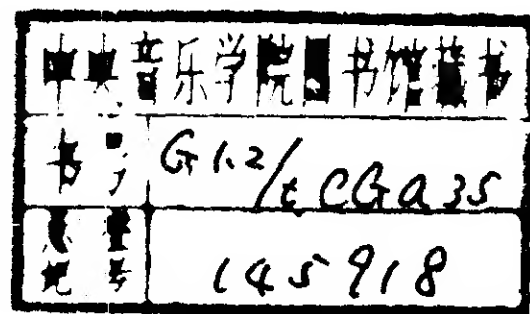 中央音乐学院图书馆藏书
书号 G1.2/tCGa35
总登记号 145918